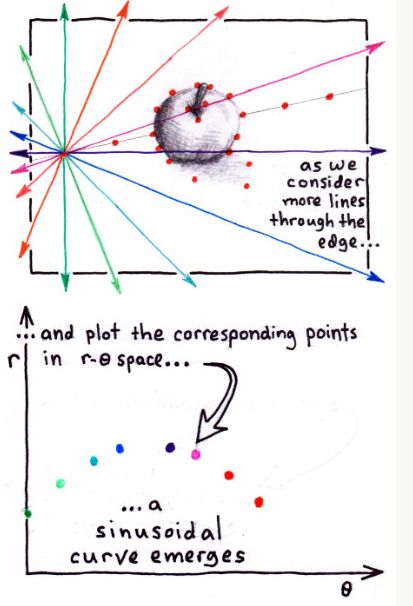 as we
consider
more lines
through the
edge...
...and plot the corresponding points
r in r-θ space...
...a
sinusoidal
curve emerges
θ